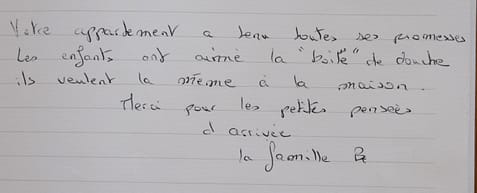 Votre appartement a tenu toutes ses promesses
Les enfants ont aimé la "boîte" de douche
ils veulent la même à la maison.
Merci pour les petites pensées
d'arrivée
la famille